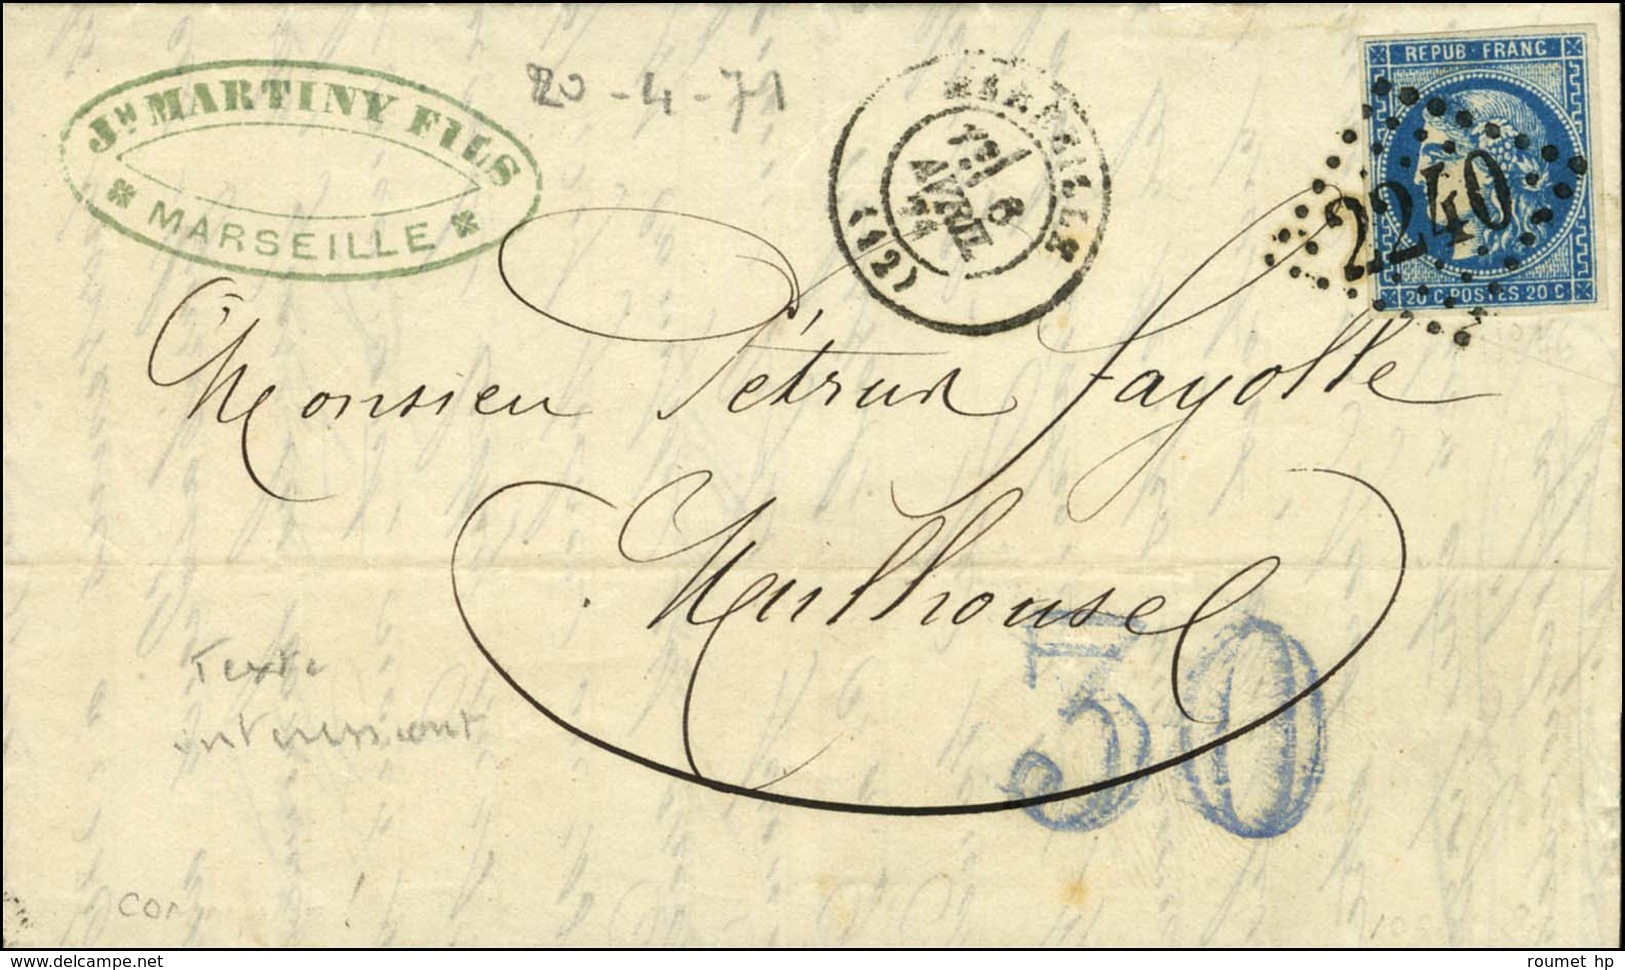 Jh MARTINY FILS
MARSEILLE
20-4-71
MARSEILLE
6
AVRIL
71
(12)
REPUB·FRANC
2240
20 C·POSTES 20 C
Monsieur Pétrus Fayolle
Mulhouse
30
Texte
intéressant
www.delcampe.net
roumet hp